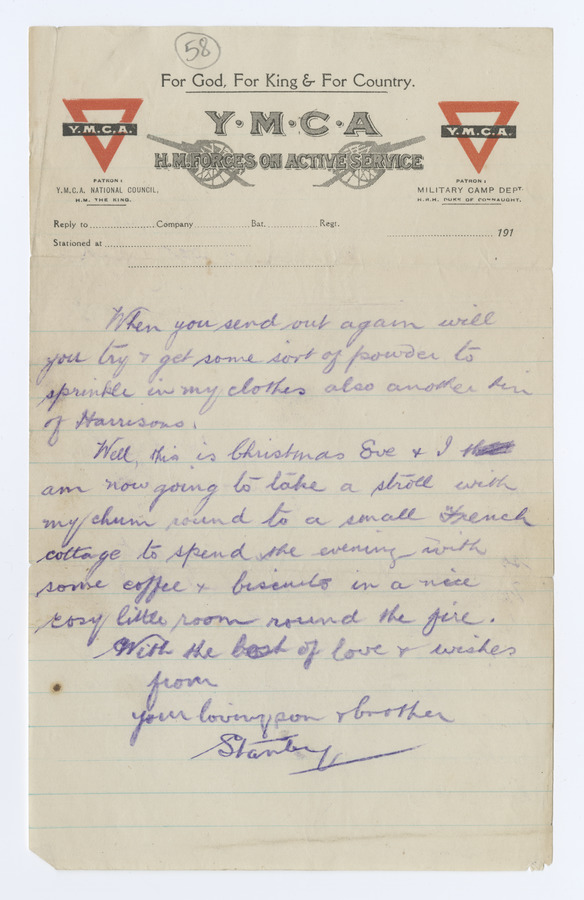 58
For God, For King & For Country.
Y·M·C·A
H.M. FORCES ON ACTIVE SERVICE
Y.M.C.A.
Y.M.C.A.
PATRON:
Y.M.C.A. NATIONAL COUNCIL.
H.M. THE KING.
PATRON:
MILITARY CAMP DEPT.
H.R.H. DUKE OF CONNAUGHT.
Reply to Company Bat. Regt.
191
Stationed at
When you send out again will
you try & get some sort of powder to
sprinkle in my clothes also another tin
of Harrisons.
Well, this is Christmas Eve & I
am now going to take a stroll with
my chum round to a small French
cottage to spend the evening with
some coffee & biscuits in a nice
cosy little room round the fire.
With the best of love & wishes
from
your loving son & brother
Stanley